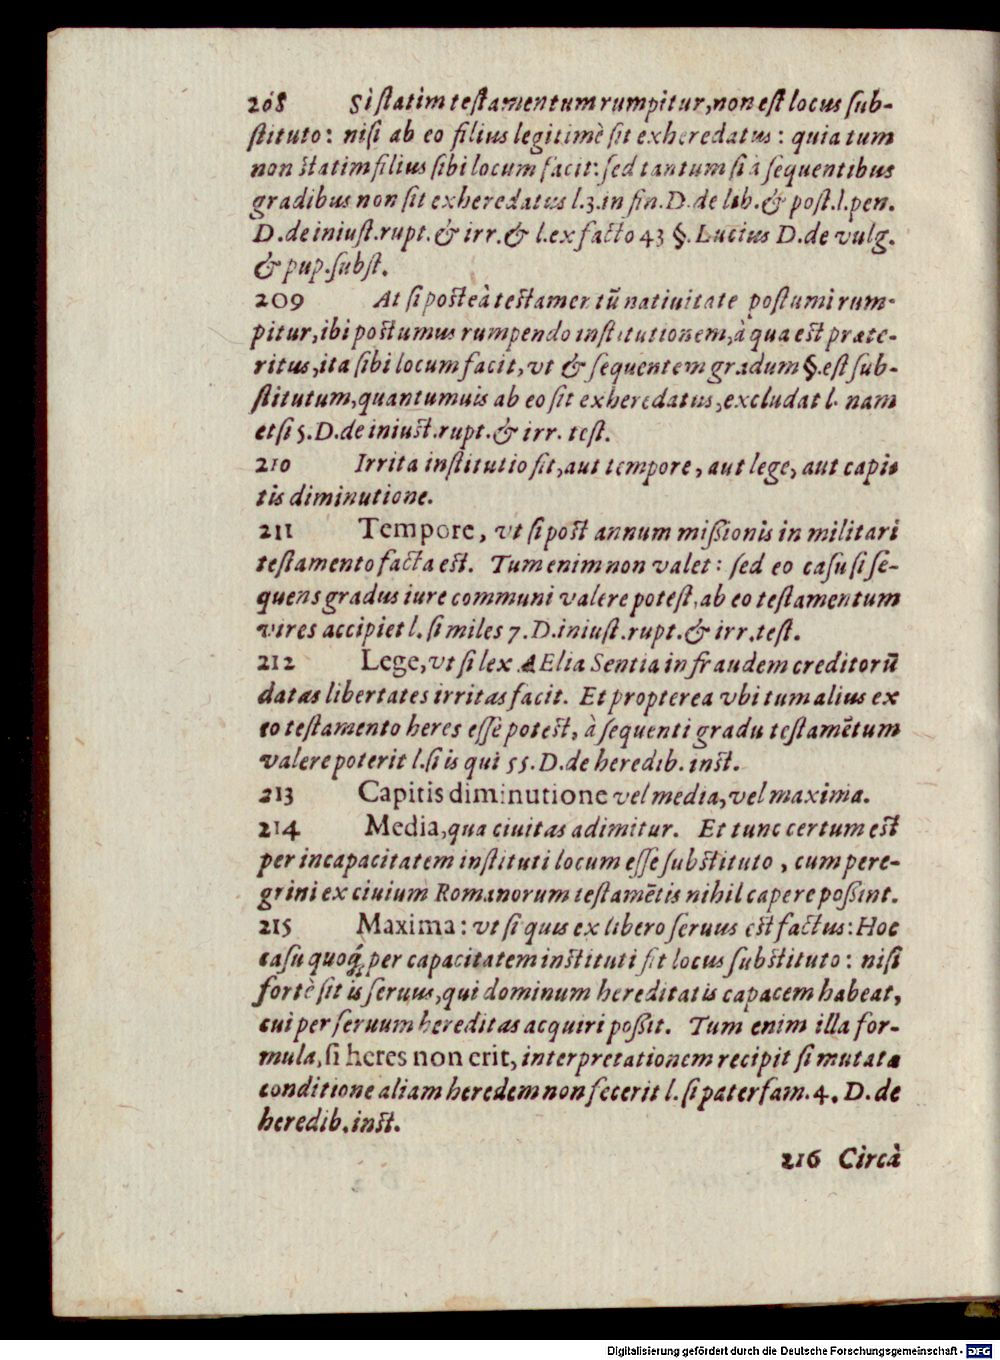 208 Si statim testamentum rumpitur, non est locus sub-
stituto: nisi ab eo filius legitimè sit exheredatus: quia tum
non statim filius sibi locum facit: sed tantum si à sequentibus
gradibus non sit exheredatus l.3. in fin. D. de lib. & post. l. pen.
D. de iniust. rupt. & irr. & l. ex facto 43 §. Lucius D. de vulg.
& pup. subst.
209 At si posteà testamentũ natiuitate postumi rum-
pitur, ibi postumus rumpendo institutionem, à qua est præte-
ritus, ita sibi locum facit, vt & sequentem gradum §. est sub-
stitutum, quantumuis ab eo sit exheredatus, excludat l. nam
etsi 5. D. de iniust. rupt. & irr. test.
210 Irrita institutio fit, aut tempore, aut lege, aut capi-
tis diminutione.
211 Tempore, vt si post annum missionis in militari
testamento facta est. Tum enim non valet: sed eo casu si se-
quens gradus iure communi valere potest, ab eo testamentum
vires accipiet l. si miles 7. D. iniust. rupt. & irr. test.
212 Lege, vt si lex AElia Sentia in fraudem creditorũ
datas libertates irritas facit. Et propterea vbi tum alius ex
eo testamento heres esse potest, à sequenti gradu testamētum
valere poterit l. si is qui 55. D. de heredib. inst.
213 Capitis diminutione vel media, vel maxima.
214 Media, qua ciuitas adimitur. Et tunc certum est
per incapacitatem instituti locum esse substituto, cum pere-
grini ex ciuium Romanorum testamētis nihil capere possint.
215 Maxima: vt si quis ex libero seruus est factus: Hoc
casu quoq́; per capacitatem instituti fit locus substituto: nisi
fortè sit is seruus, qui dominum hereditatis capacem habeat,
cui per seruum hereditas acquiri possit. Tum enim illa for-
mula, si heres non erit, interpretationem recipit si mutata
conditione aliam heredem non fecerit l. si paterfam. 4. D. de
heredib. inst.
216 Circà
Digitalisierung gefördert durch die Deutsche Forschungsgemeinschaft - DFG